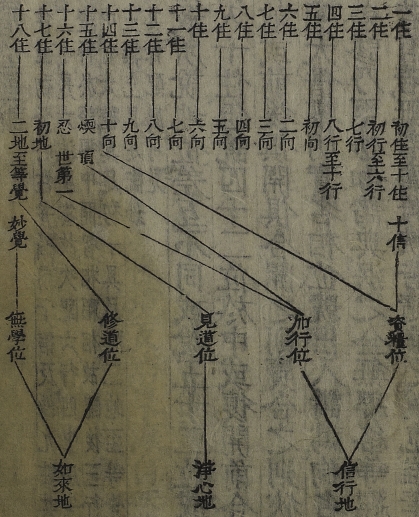 一住
二住
三住
四住
五住
六住
七住
八住
九住
十住
十一住
十二住
十三住
十四住
十五住
十六住
十七住
十八住
初住至十住
初行至六行
七行
八行至十行
初向
二向
三向
四向
五向
六向
七向
八向
九向
十向
煗 頂
忍 世第一
初地
二地至等覺
十信
妙覺
資糧位
加行位
見道位
修道位
無學位
信行地
淨心地
如來地